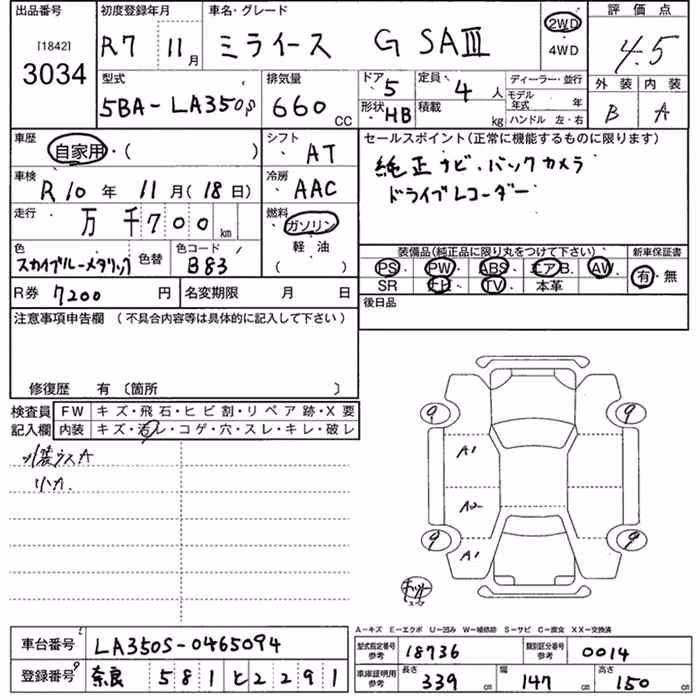 出品番号 初度登録年月 車名・グレード 評価点
[1842] 3034 R7 11月 ミライース G SAIII 2WD 4WD 4.5
型式 排気量 ドア 定員 ディーラー・並行 外装 内装
5BA-LA350S 660 CC 5 4人 モデル年式 年 B A
形状 HB 積載 kg ハンドル 左・右
車歴 自家用・( ) シフト AT
セールスポイント(正常に機能するものに限ります)
純正ナビ・バックカメラ
ドライブレコーダー
車検 R10年 11月(18日) 冷房 AAC
走行 万 千700 km 燃料 ガソリン 軽油 ( )
色 スカイブルーメタリック 色替 色コード B83
装備品(純正品に限り丸をつけて下さい) 新車保証書
PS・PW・ABS・エアB.・AW・ 有・無
SR ナビ・TV・本革
R券 7200 円 名変期限 月 日
後日品
注意事項申告欄 (不具合内容等は具体的に記入して下さい)
修復歴 有 〔箇所 〕
検査員 FW キズ・飛石・ヒビ割・リペア跡・X要
記入欄 内装 キズ・汚レ・コゲ・穴・スレ・キレ・破レ
小カ
9 9
A1
A2
9 9
A1
キット
A-キズ E-エクボ U-凹み W-補修跡 S-サビ C-腐食 XX-交換済
車台番号 LA350S-0465094
型式指定番号参考 18736 類別区分番号参考 0014
登録番号 奈良 581 と 2291
車庫証明用参考 長さ 339 cm 幅 147 cm 高さ 150 cm